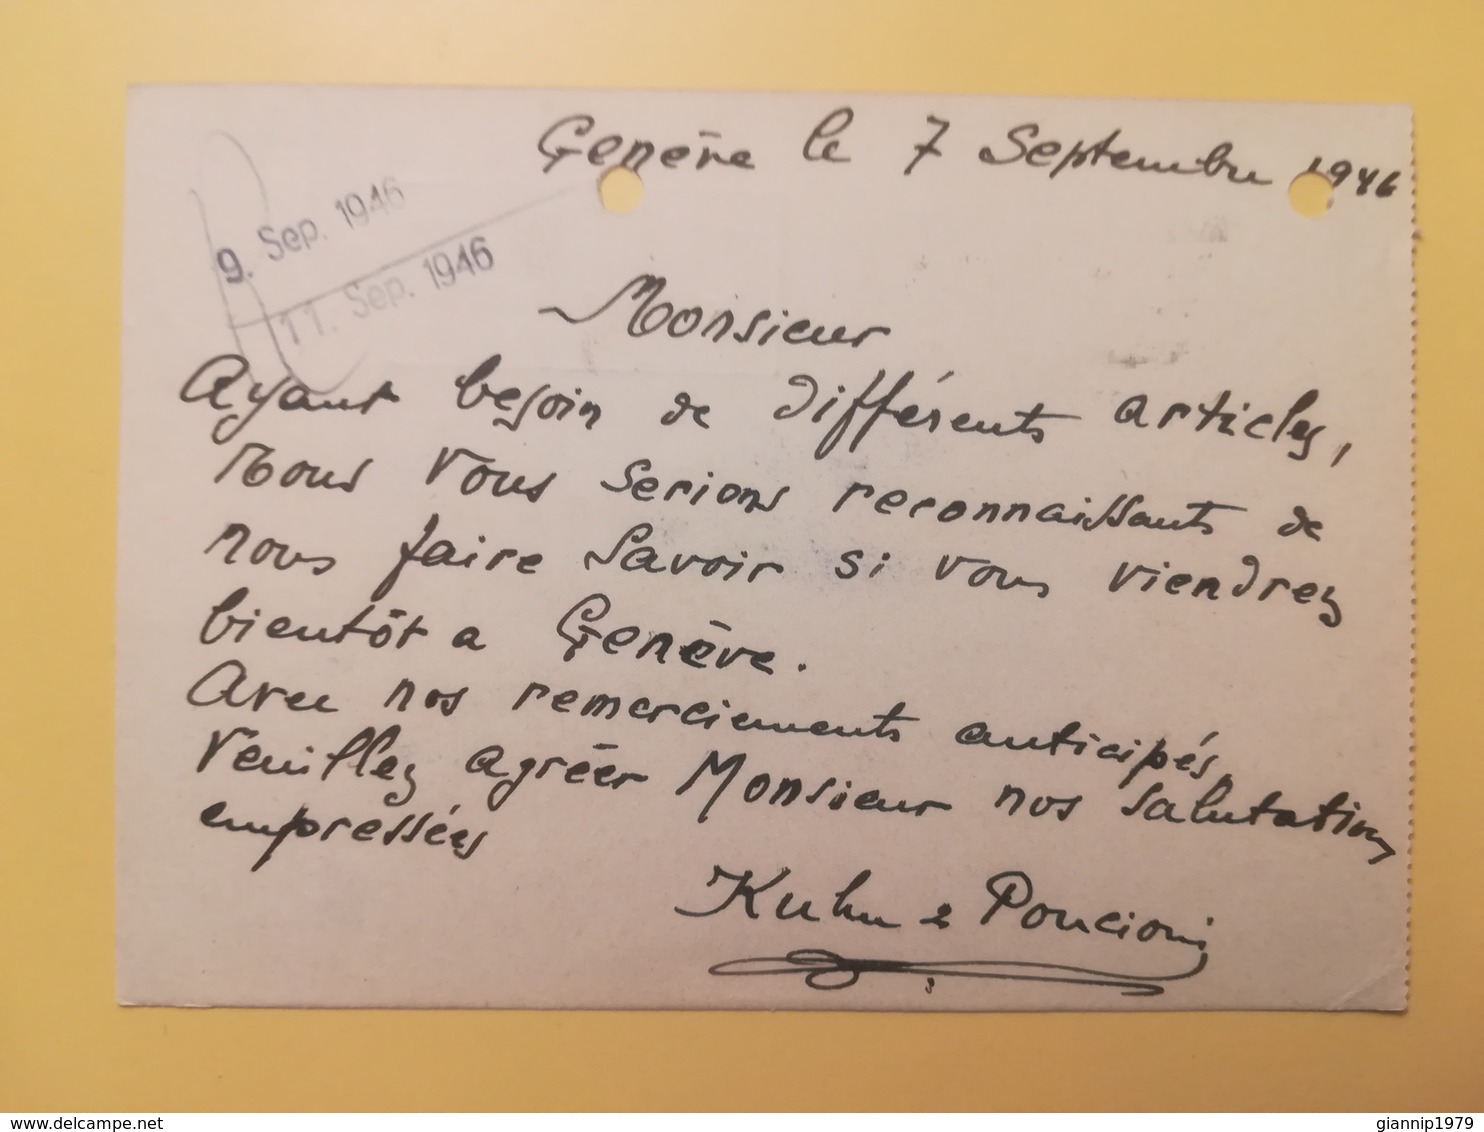 Genève le 7 Septembre 1946
9. Sep. 1946
11. Sep. 1946
Monsieur
Ayant besoin de différents articles,
Nous vous serions reconnaissants de
nous faire savoir si vous viendrez
bientôt a Genève.
Avec nos remerciements anticipés,
Veuillez agréer Monsieur nos salutations
empressées
Kuhn & Poncioni
www.delcampe.net
giannip1979